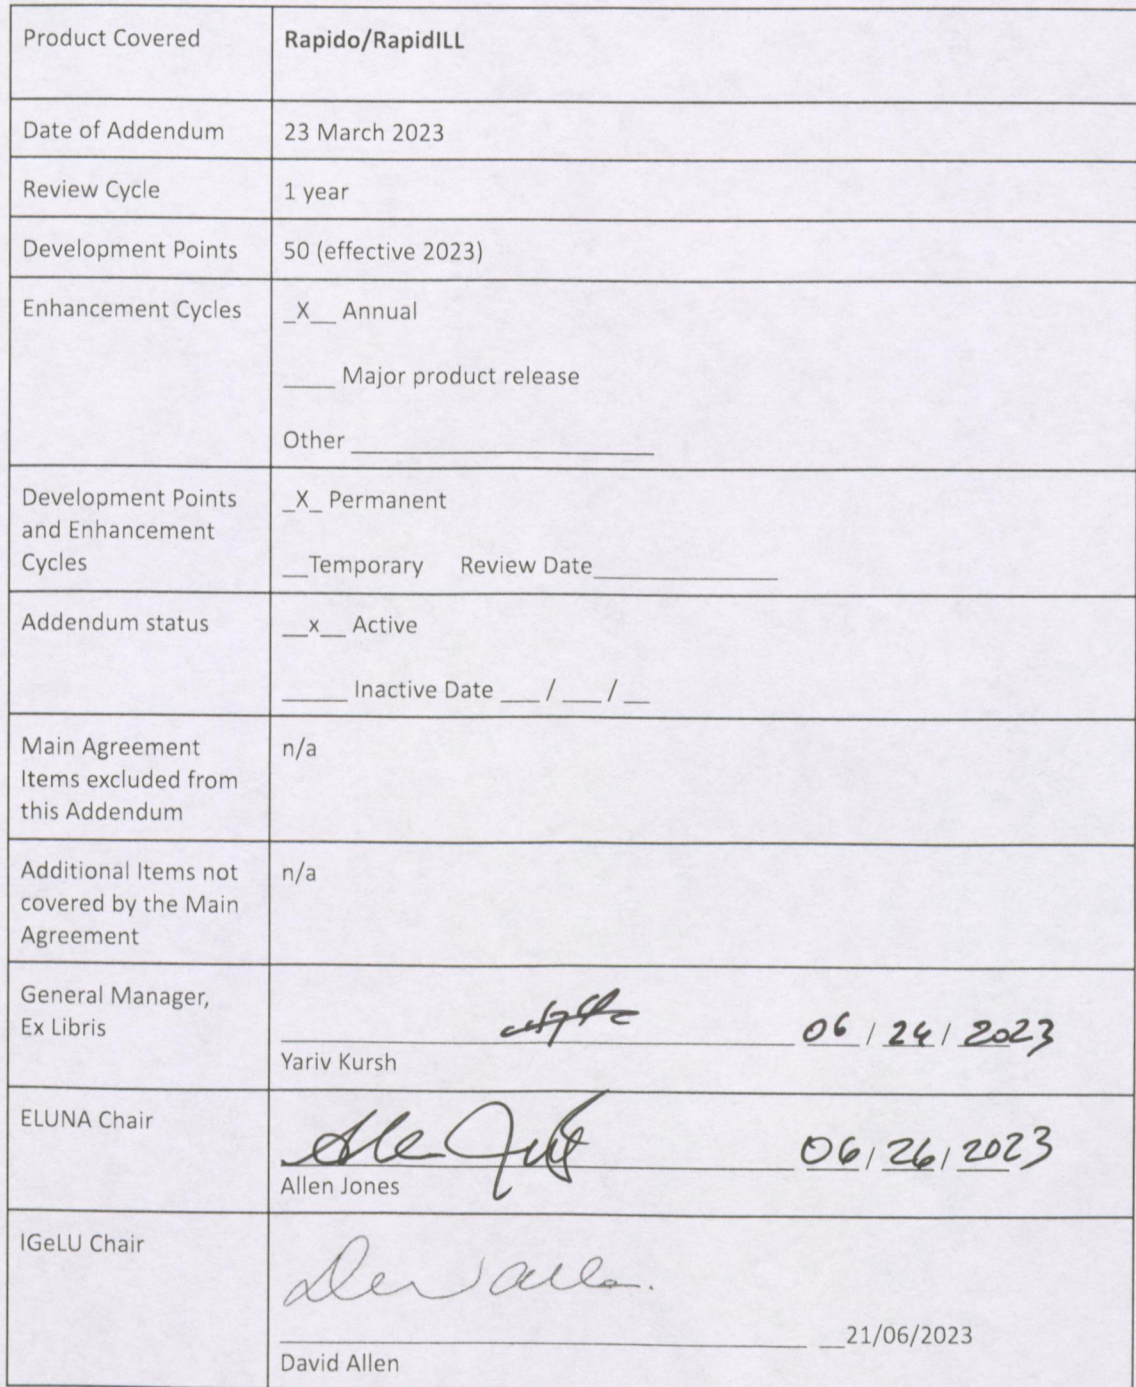 Product Covered
Rapido/RapidILL
Date of Addendum
23 March 2023
Review Cycle
1 year
Development Points
50 (effective 2023)
Enhancement Cycles
_X__ Annual
____ Major product release
Other ________________________
Development Points
and Enhancement
Cycles
_X_ Permanent
__Temporary Review Date_______________
Addendum status
__x__ Active
_____ Inactive Date ___ / ___ / __
Main Agreement
Items excluded from
this Addendum
n/a
Additional Items not
covered by the Main
Agreement
n/a
General Manager,
Ex Libris
06 / 24 / 2023
Yariv Kursh
ELUNA Chair
06 / 26 / 2023
Allen Jones
IGeLU Chair
__21/06/2023
David Allen